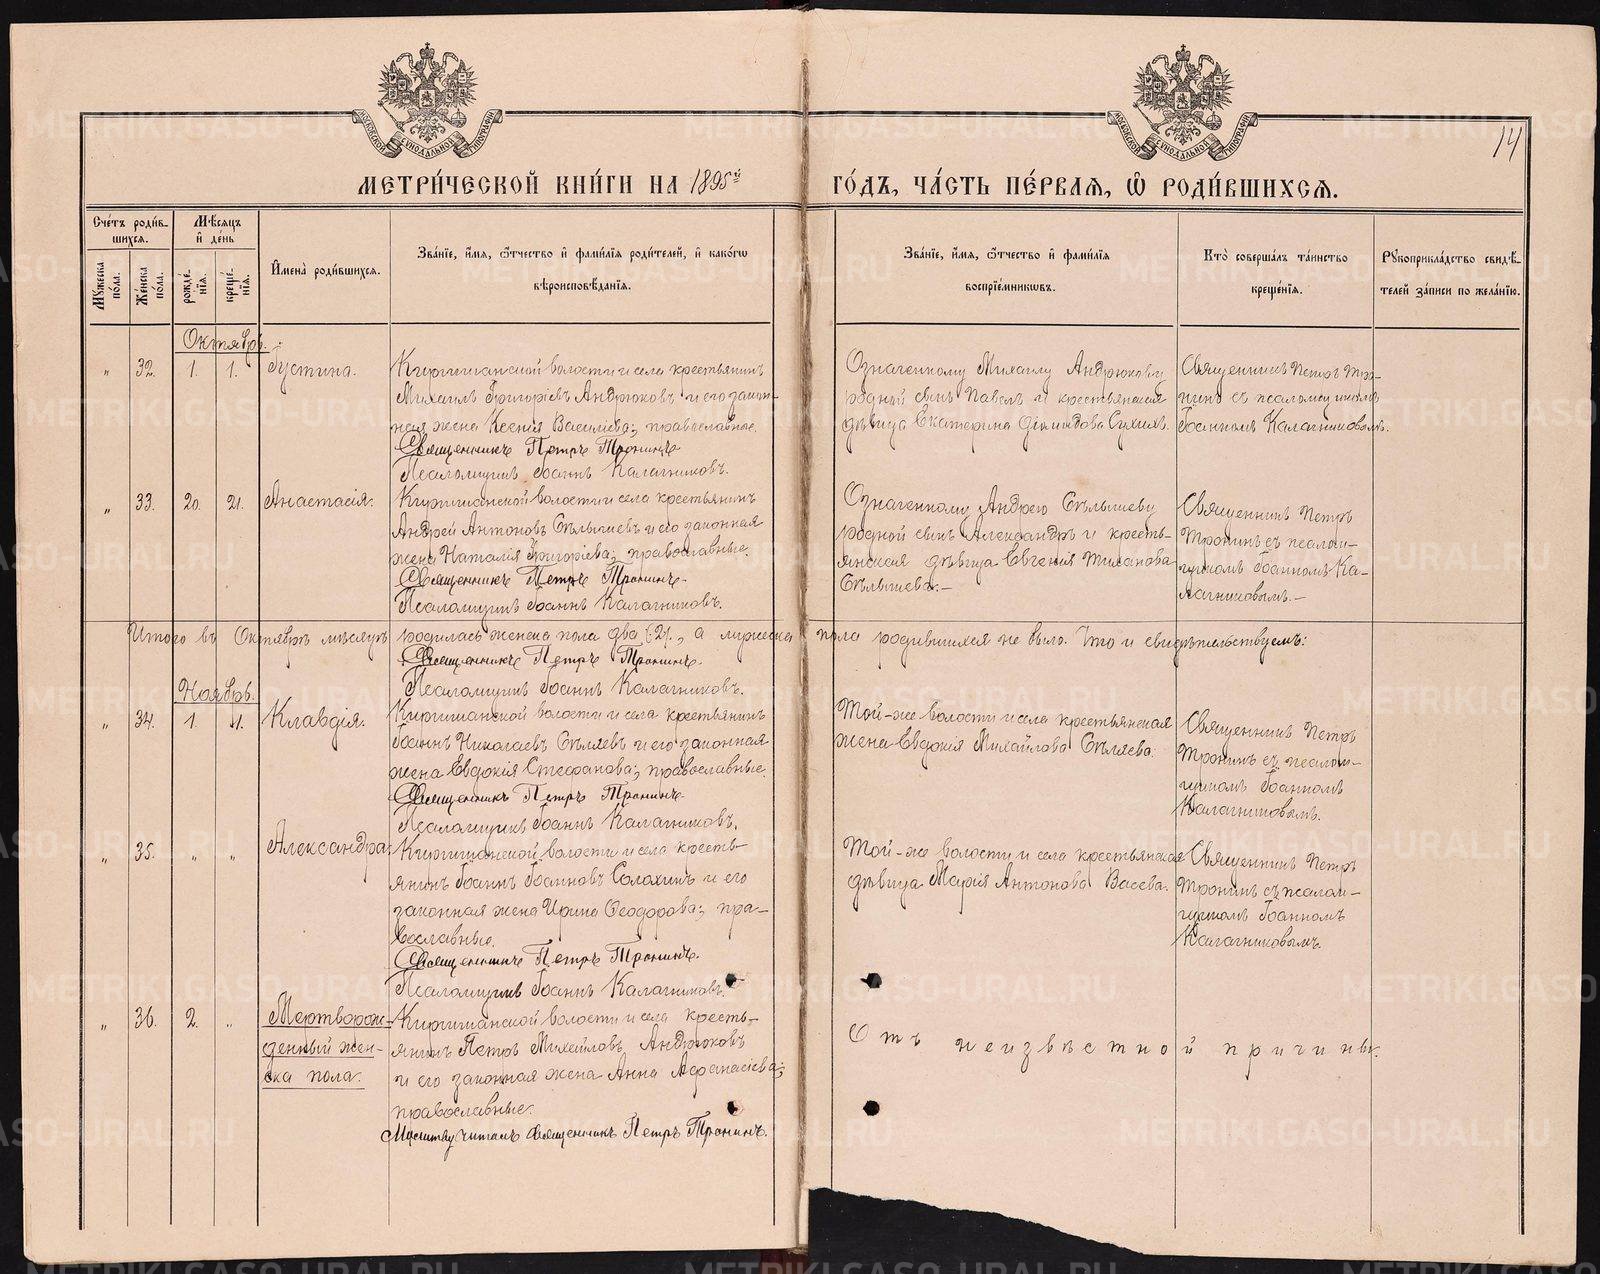 МЕТРИЧЕСКОЙ КНИГИ НА 1895й ГОДЪ, ЧАСТЬ ПЕРВАЯ, Ѡ РОДИВШИХСЯ.
14
Счетъ родившихся.
Мужеска пола.
Женска пола.
Мѣсяцъ и день
рожденія.
крещенія.
Имена родившихся.
Званіе, имя, отчество и фамилія родителей, и какого
вѣроисповѣданія.
Званіе, имя, отчество и фамилія
воспріемниковъ.
Кто совершалъ таинство
крещенія.
Рукоприкладство свидѣ-
телей записи по желанію.
Октябрь.
" 32. 1. 1. Іустина.
Киргишанской волости и села крестьянинъ
Михаилъ Григоріевъ Андрюковъ и его закон-
ная жена Ксенія Василіева; православные.
Священникъ Петръ Тронинъ
Псаломщикъ Іоаннъ Калачниковъ.
Означенному Михаилу Андрюкову
родной сынъ Павелъ и крестьянская
дѣвица Екатерина
Священникъ Петръ Тро-
нинъ съ псаломщикомъ
Іоанномъ Калачниковымъ.
" 33. 20. 21. Анастасія.
Киргишанской волости и села крестьянинъ
Андрей Антоновъ Сѣлышевъ и его законная
жена Наталія Григоріева; православные.
Священникъ Петръ Тронинъ
Псаломщикъ Іоаннъ Калачниковъ.
Означенному Андрею Сѣлышеву
родной сынъ Александръ и кресть-
янская дѣвица Евгенія Тиханова
Сѣлышева.-
Священникъ Петръ
Тронинъ съ псалом-
щикомъ Іоанномъ Ка-
лачниковымъ.-
Итого въ Октябрѣ мѣсяцѣ родилась женска пола два (2), а мужеска пола родившихся не было. Что и свидѣтельствуемъ:
Священникъ Петръ Тронинъ.
Псаломщикъ Іоаннъ Калачниковъ.
Ноябрь.
" 34. 1. 1. Клавдія.
Киргишанской волости и села крестьянинъ
Іоаннъ Николаевъ Сѣляевъ и его законная
жена Евдокія Стефанова; православные.
Священникъ Петръ Тронинъ
Псаломщикъ Іоаннъ Калачниковъ.
Той-же волости и села крестьянская
жена Евдокія Михайлова Сѣляева.
Священникъ Петръ
Тронинъ съ псалом-
щикомъ Іоанномъ
Калачниковымъ.
" 35. " " Александра.
Киргишанской волости и села кресть-
янинъ Іоаннъ Іоанновъ Солохинъ и его
законная жена Ирина Ѳеодорова; пра-
вославные.
Священникъ Петръ Тронинъ.
Псаломщикъ Іоаннъ Калачниковъ.
Той-же волости и села крестьянская
дѣвица Марія Антонова Васева.
Священникъ Петръ
Тронинъ съ псалом-
щикомъ Іоанномъ
Калачниковымъ.
" 36. 2. " Мертворож-
денный жен-
ска пола.
Киргишанской волости и села кресть-
янинъ Петръ Михайловъ Андрюковъ
и его законная жена Анна Аѳанасіева;
православные.
Молитву читалъ Священникъ Петръ Тронинъ.
Отъ неизвѣстной причины.
METRIKI.GASO-URAL.RU